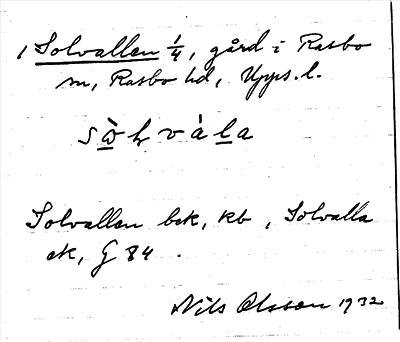 1 Solvallen 1/4, gård i Rasbo
sn, Rasbo hd, Upps. l.
Solvallen bek, kb, Solvalla
ek, G 84.
Nils Olsson 1932